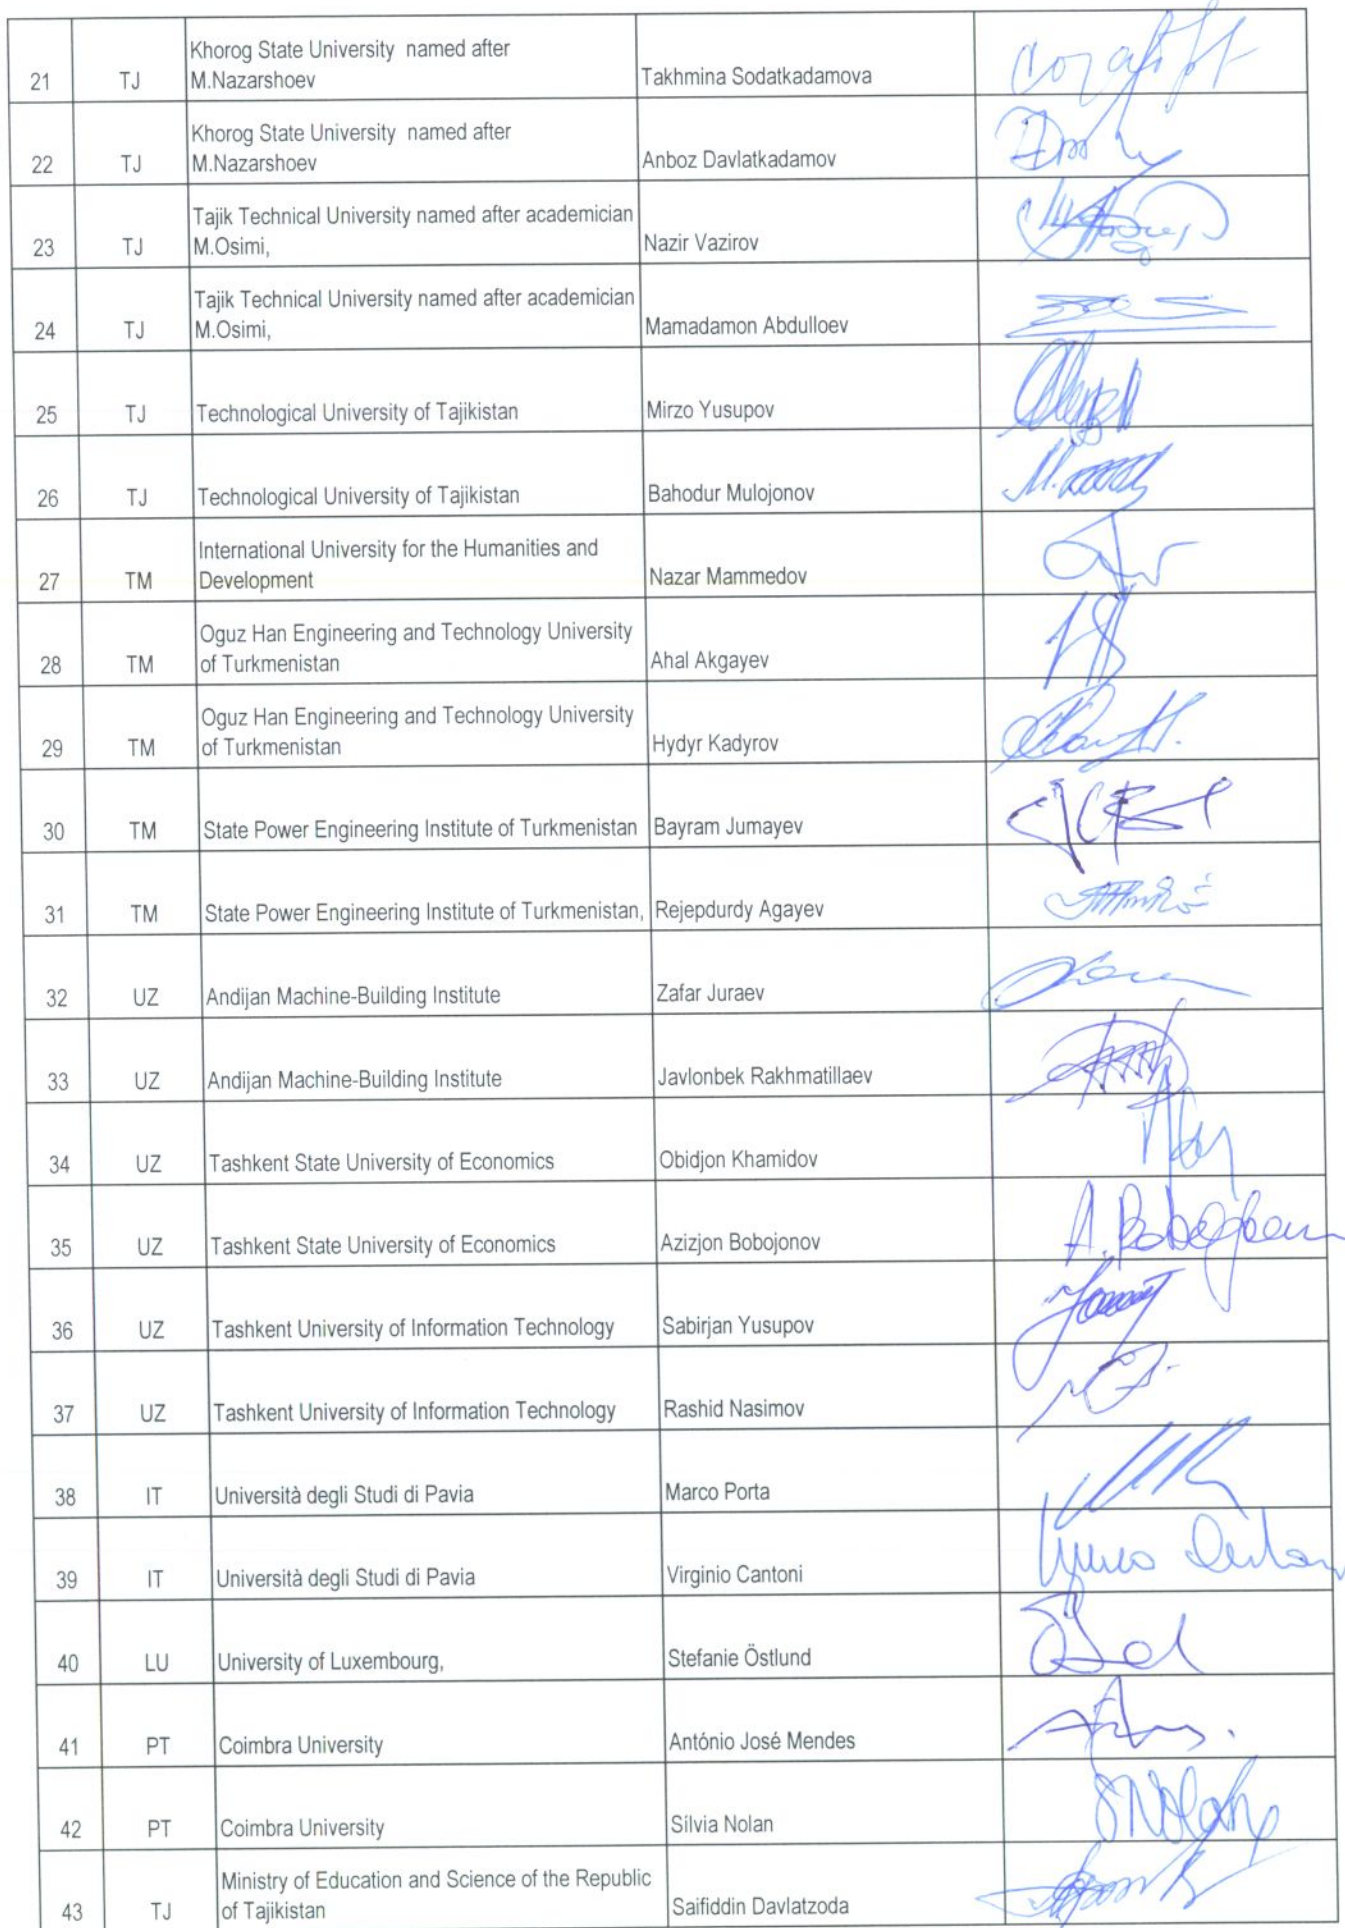 21 TJ Khorog State University named after M.Nazarshoev Takhmina Sodatkadamova
22 TJ Khorog State University named after M.Nazarshoev Anboz Davlatkadamov
23 TJ Tajik Technical University named after academician M.Osimi, Nazir Vazirov
24 TJ Tajik Technical University named after academician M.Osimi, Mamadamon Abdulloev
25 TJ Technological University of Tajikistan Mirzo Yusupov
26 TJ Technological University of Tajikistan Bahodur Mulojonov
27 TM International University for the Humanities and Development Nazar Mammedov
28 TM Oguz Han Engineering and Technology University of Turkmenistan Ahal Akgayev
29 TM Oguz Han Engineering and Technology University of Turkmenistan Hydyr Kadyrov
30 TM State Power Engineering Institute of Turkmenistan Bayram Jumayev
31 TM State Power Engineering Institute of Turkmenistan, Rejepdurdy Agayev
32 UZ Andijan Machine-Building Institute Zafar Juraev
33 UZ Andijan Machine-Building Institute Javlonbek Rakhmatillaev
34 UZ Tashkent State University of Economics Obidjon Khamidov
35 UZ Tashkent State University of Economics Azizjon Bobojonov
36 UZ Tashkent University of Information Technology Sabirjan Yusupov
37 UZ Tashkent University of Information Technology Rashid Nasimov
38 IT Università degli Studi di Pavia Marco Porta
39 IT Università degli Studi di Pavia Virginio Cantoni
40 LU University of Luxembourg, Stefanie Östlund
41 PT Coimbra University António José Mendes
42 PT Coimbra University Sílvia Nolan
43 TJ Ministry of Education and Science of the Republic of Tajikistan Saifiddin Davlatzoda